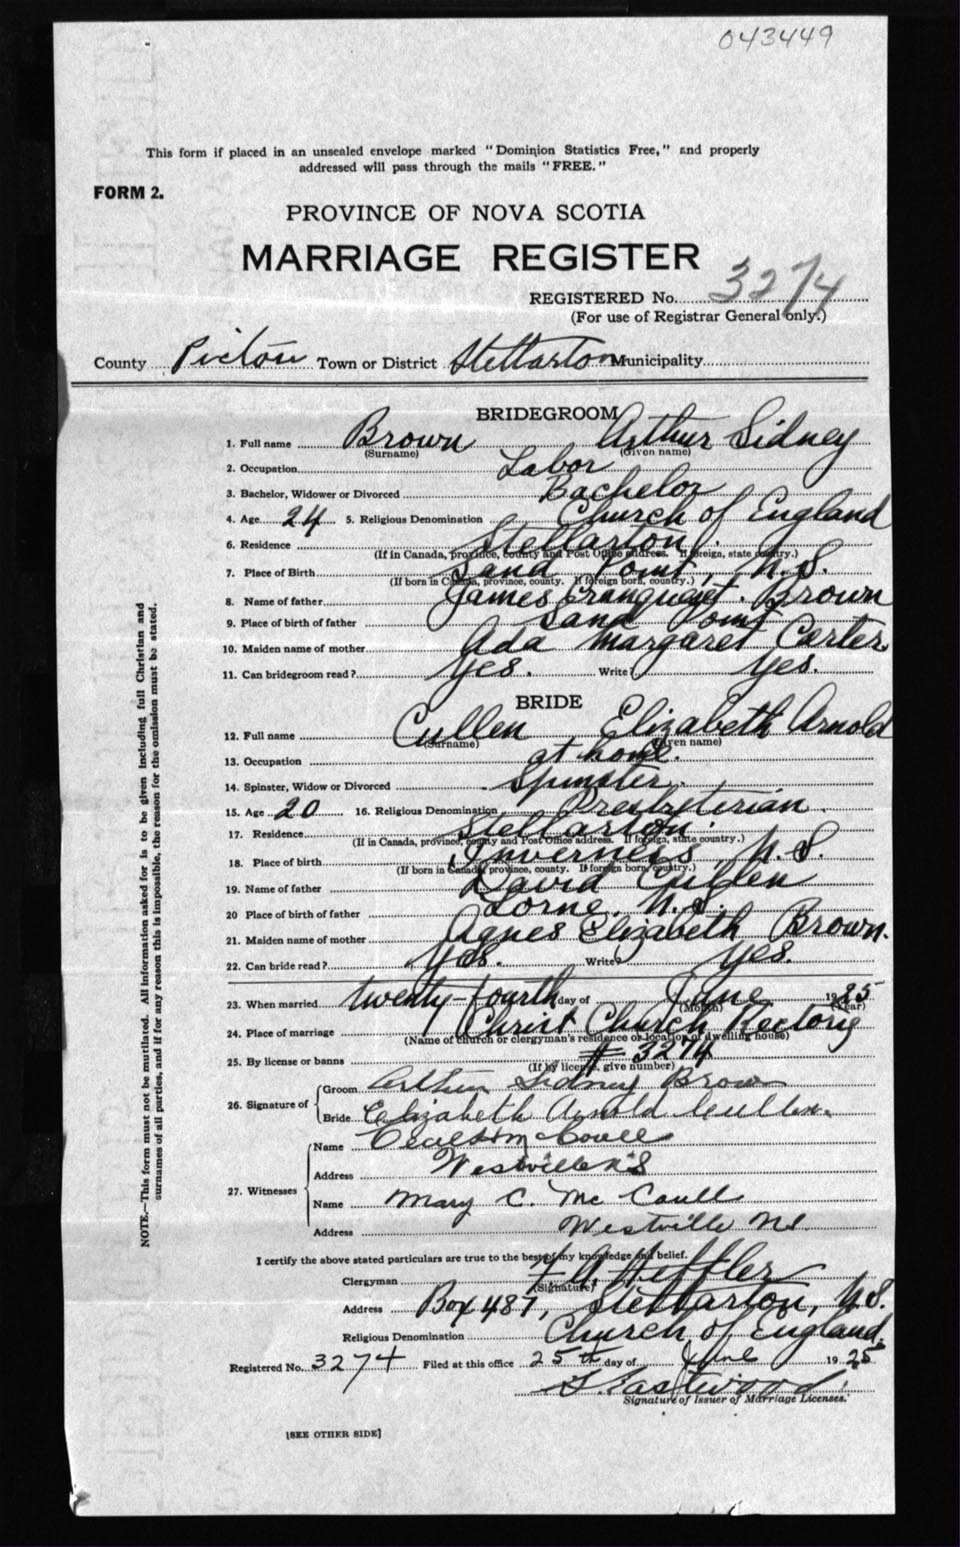 043449
This form if placed in an unsealed envelope marked "Dominion Statistics Free," and properly
addressed will pass through the mails "FREE."
FORM 2.
PROVINCE OF NOVA SCOTIA
MARRIAGE REGISTER
REGISTERED No. 3274
(For use of Registrar General only.)
County Pictou Town or District Stellarton Municipality
BRIDEGROOM
1. Full name Brown Arthur Sidney
(Surname) (Given name)
2. Occupation Labor
3. Bachelor, Widower or Divorced Bachelor
4. Age 24 5. Religious Denomination Church of England
6. Residence Stellarton
(If in Canada, province, county and Post Office address. If foreign, state country.)
7. Place of Birth Sand Point, N.S.
(If born in Canada, province, county. If foreign born, country.)
8. Name of father James Brown
9. Place of birth of father Sand Point
10. Maiden name of mother Ada Margaret Carter
11. Can bridegroom read? Yes. Write? Yes.
BRIDE
12. Full name Cullen Elizabeth Arnold
(Surname) (Given name)
13. Occupation at home.
14. Spinster, Widow or Divorced Spinster.
15. Age 20 16. Religious Denomination Presbyterian.
17. Residence Stellarton.
(If in Canada, province, county and Post Office address. If foreign, state country.)
18. Place of birth Inverness, N.S.
(If born in Canada, province, county. If foreign born, country.)
19. Name of father David Cullen
20 Place of birth of father Lorne, N.S.
21. Maiden name of mother Agnes Elizabeth Brown.
22. Can bride read? Yes. Write? Yes.
23. When married twenty-fourth day of June 1925
(Month) (Year)
24. Place of marriage Christ Church Rectory
(Name of church or clergyman's residence or location of dwelling house)
25. By license or banns # 3274
(If by license, give number)
26. Signature of
Groom Arthur Sidney Brown
Bride Elizabeth Arnold Cullen.
27. Witnesses
Name
Address Westville N S
Name Mary C. McCoull
Address Westville NS.
I certify the above stated particulars are true to the best of my knowledge and belief.
Clergyman Heffler
(Signature)
Address Box 487, Stellarton, N.S.
Religious Denomination Church of England.
Registered No. 3274 Filed at this office 25th day of June 1925
Eastwood
Signature of Issuer of Marriage Licenses.
[SEE OTHER SIDE]
NOTE.—This form must not be mutilated. All information asked for is to be given including full Christian and
surnames of all parties, and if for any reason this is impossible, the reason for the omission must be stated.